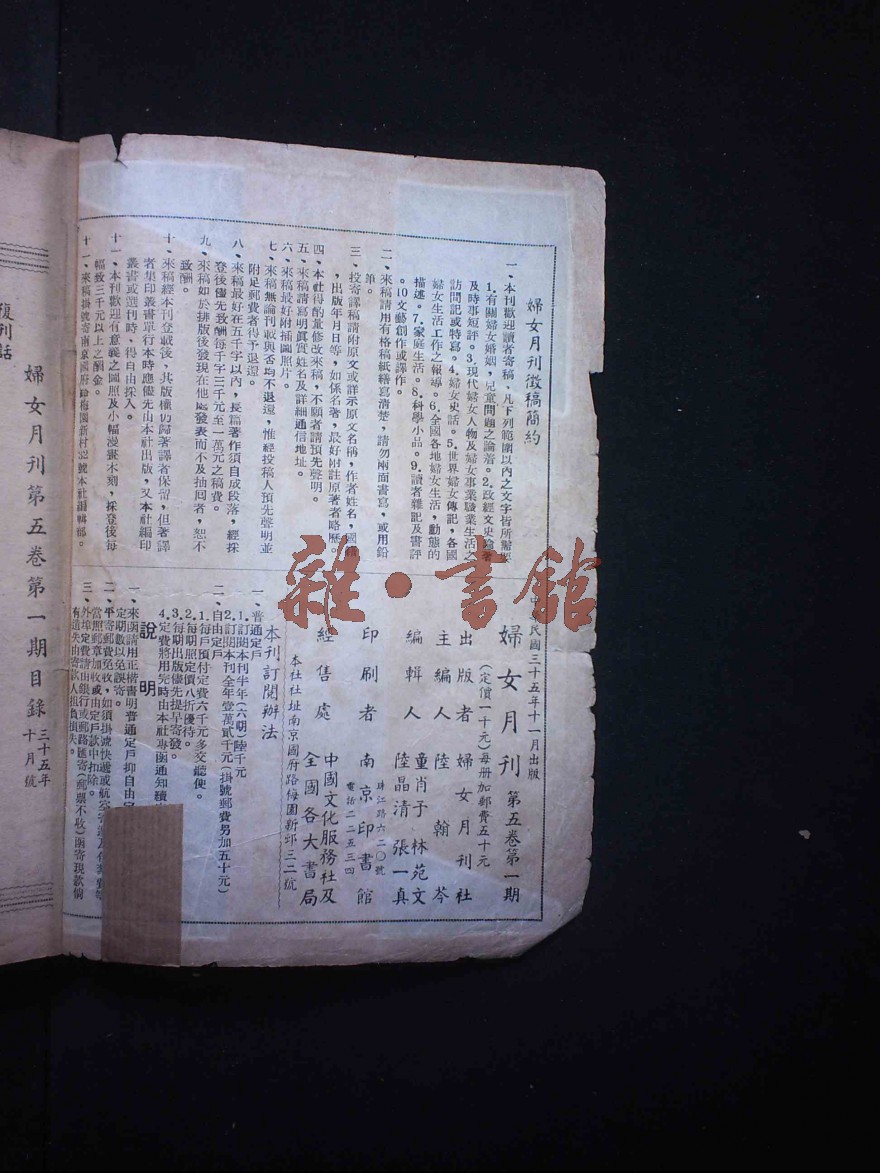 婦女月刊徵稿簡約
一、本刊歡迎讀者寄稿，凡下列範圍以內之文字皆所需要
1.有關婦女婚姻，兒童問題之論著。2.政經文史論著
及時事短評。3.現代婦女人物及婦女事業職業生活之
訪問記或特寫。4.婦女史話。5.世界婦女傳記，各國
婦女生活工作之報導。6.全國各地婦女生活，動態的
描述。7.家庭生活。8.科學小品。9.讀者雜記及書評
。10文藝創作或譯作。
二、來稿請用有格稿紙繕寫清楚，請勿兩面書寫，或用鉛
筆。
三、投寄譯稿請附原文或詳示原文名稱，作者姓名，國籍
，出版年月日等，如係名著，最好附註原著者略歷。
四、本社得酌量修改來稿，不願者請預先聲明。
五、來稿請寫明眞實姓名及詳細通信地址。
六、來稿最好附插圖照片。
七、來稿無論刊載與否均不退還，惟經投稿人預先聲明並
附足郵費者得予退還。
八、來稿最好在五千字以內，長篇著作須自成段落，經採
登後優先致酬每千字三千元至一萬元之稿費。
九、來稿如於排版後發現在他處發表而不及抽囘者，恕不
致酬。
十、來稿經本刊登載後，其版權仍歸著譯者保留，但著譯
者集印叢書單行本時應儘先由本社出版，又本社編印
叢書或選刊時、得自由採入。
十一、本刊歡迎有意義之圖照及小幅漫畫木刻，採登後每
幅致三千元以上之酬金。
十二、來稿掛號寄南京國府路梅園新村32號本社編輯部。
中華民國三十五年十一月出版
婦女月刊 第五卷第一期
(定價一千元)每册加郵費五十元
出版者 婦女月刊社
主編人 陸翰芩
編輯人 童肖予 林苑文
陸晶清 張一真
印刷者 南京印書館
珠江路六二〇號
電話二二五三四
經售處 中國文化服務社及
全國各大書局
本社社址南京國府路梅園新邨三二號
本刊訂閱辦法
一、普通定戶
1.訂閱本刊半年(六期)陸千元
2.訂閱本刊全年壹萬貳千元(掛號郵費另加五十元)
二、自由定戶
1.每戶預付定費六千元多交聽便。
2.每期照定價八折優待。
3.每期出版儘先提早寄發。
4.定費將用完時由本社專函通知續
說明
一、來函請用正楷書明普通定戶抑自由定
定期數以免誤寄。
二、平寄郵費免收，如須掛號快遞或航空寄
當照郵章加收或由定戶款中扣除。
三、外埠定費請由銀行或郵路匯寄(郵票不收)函寄現款倘
有遺失由寄款人担負損失。
婦女月刊第五卷第一期目錄 三十五年
十月號
復刊話
雜·書館